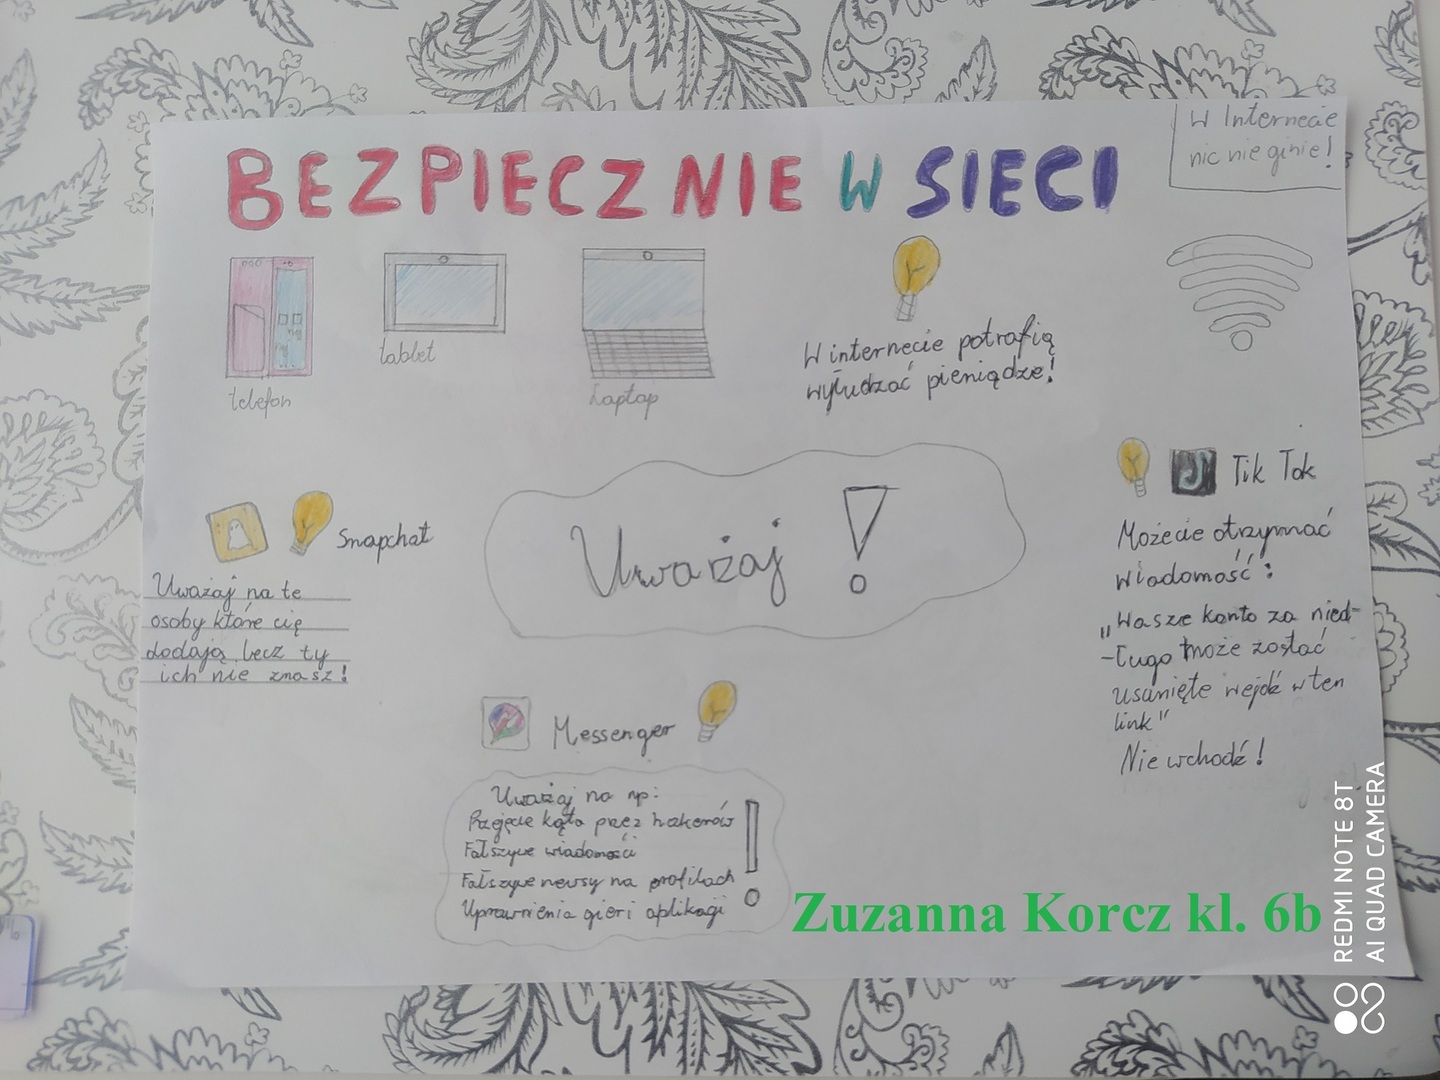 W Internecie
nic nie ginie!
BEZPIECZNIE W SIECI
telefon
tablet
Laptop
W internecie potrafią
wyłudzać pieniądze!
Snapchat
Uważaj na te
osoby które cię
dodają lecz ty
ich nie znasz!
Uważaj!
Tik Tok
Możecie otrzymać
wiadomość:
„Wasze konto za nied-
-ługo może zostać
usunięte wejdź w ten
link"
Nie wchodź!
Messenger
Uważaj na np:
Przejęcie kąta przez hakerów
Fałszywe wiadomości
Fałszywe newsy na profilach
Uprawnienia gier i aplikacji
!
Zuzanna Korcz kl. 6b
REDMI NOTE 8T
AI QUAD CAMERA